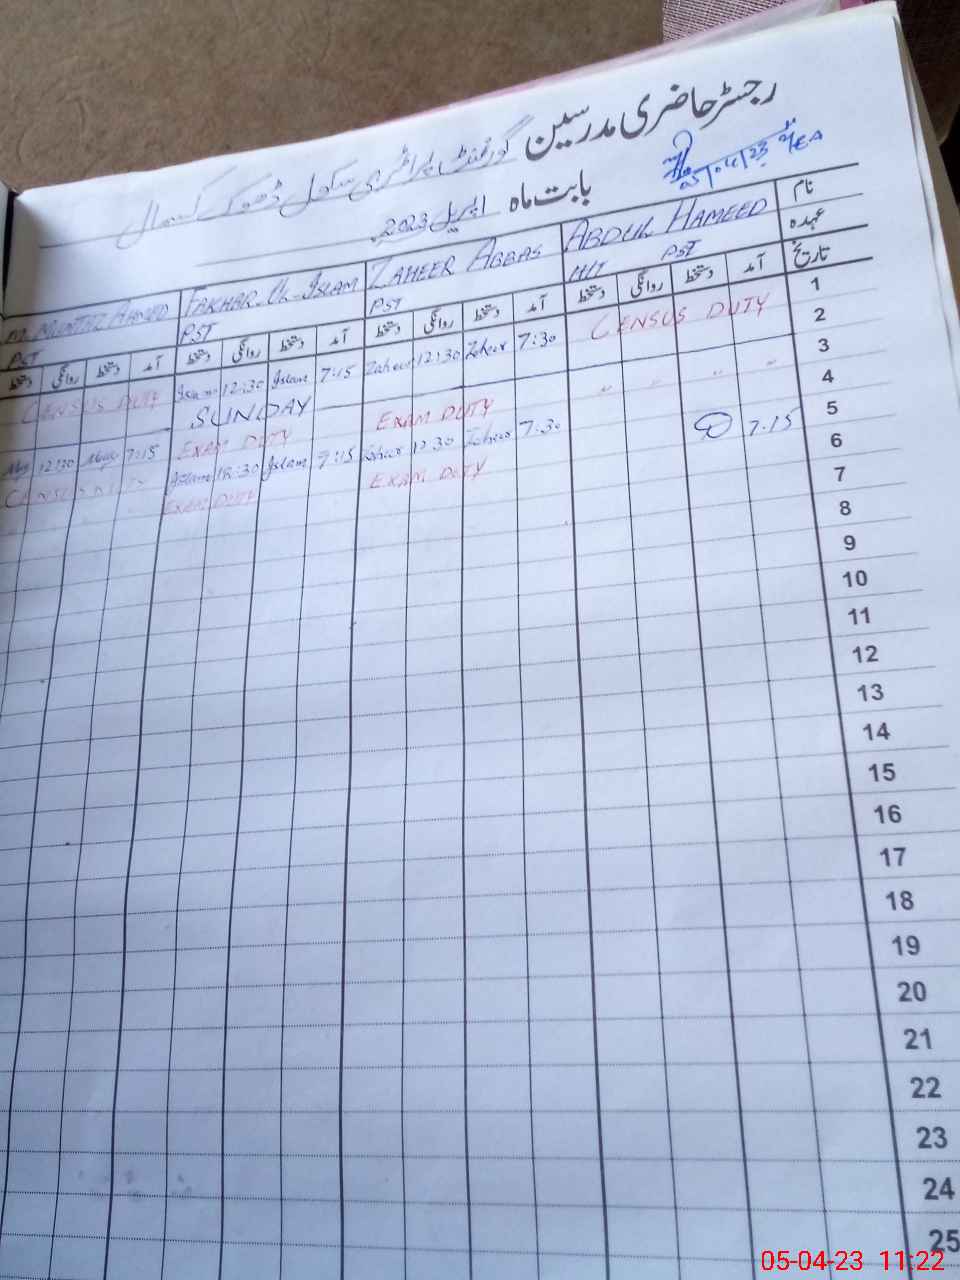 رجسٹر حاضری مدرسین گورنمنٹ پرائمری سکول ڈھوک کسمال
05/04/23 AEA
بابت ماہ اپریل 2023
نام ABDUL HAMEED ZAHEER ABBAS FAKHAR-UL-ISLAM M. MUMTAZ AHMED
عہدہ PST H/T PST PST PST
تاریخ آمد دستخط روانگی دستخط آمد دستخط روانگی دستخط آمد دستخط روانگی دستخط آمد دستخط روانگی دستخط
1 CENSUS DUTY 7:30 Zaheer 12:30 Zaheer 7:15 Islam 12:30 Islam CENSUS DUTY
2 SUNDAY
3 " " " " EXAM DUTY EXAM DUTY 7:15 12:30
4 7:30 Zaheer 12:30 Zaheer 7:15 Islam 12:30 Islam CENSUS DUTY
5 7:15 EXAM DUTY EXAM DUTY
6
7
8
9
10
11
12
13
14
15
16
17
18
19
20
21
22
23
24
25
05-04-23 11:22